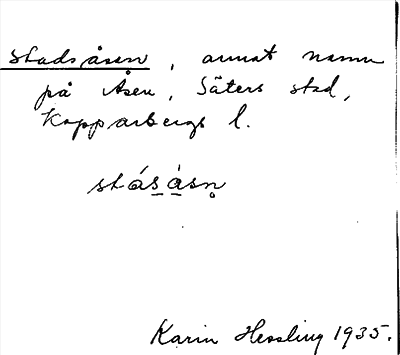 Stadsåsen, annat namn
på Åsen, Säters stad,
Kopparbergs l.
stásàsn̥
Karin Hessling 1935.